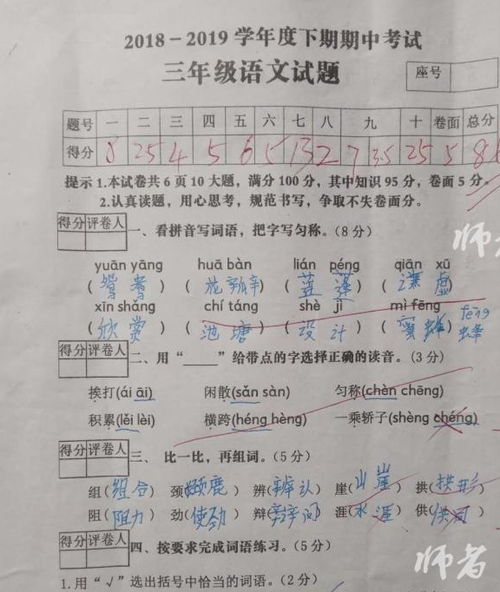 2018－2019 学年度下期期中考试
三年级语文试题
座号
题号 一 二 三 四 五 六 七 八 九 十 卷面 总分
得分 8 25 4 5 6 5 13 2 7 3.5 25 5
提示 1.本试卷共 6 页 10 大题，满分 100 分，其中知识 95 分，卷面 5 分。
2.认真读题，用心思考，规范书写，争取不失卷面分。
得分 评卷人
一、看拼音写词语，把字写匀称。（8 分）
yuān yāng huā bàn lián péng qiān xū
（鸳鸯）（花瓣）（莲蓬）（谦虚）
xīn shǎng chí táng shè jì mì fēng
（欣赏）（池塘）（设计）（蜜蜂）
fēng
蜂
得分 评卷人
二、用“____”给带点的字选择正确的读音。（3 分）
挨打(ái āi) 闲散(sǎn sàn) 匀称(chèn chēng)
积累(lěi lèi) 横跨(héng hèng) 一乘轿子(shèng chéng)
得分 评卷人
三、比一比，再组词。（5 分）
组（组合） 颈（颈鹿） 辨（辨认） 崖（山崖） 拱（拱形）
阻（阻力） 劲（使劲） 辩（辩问） 涯（水涯） 供（洪河）
得分 评卷人
四、按要求完成词语练习。（5 分）
1.用“√”选出括号中恰当的词语。（2 分）
师者
师者